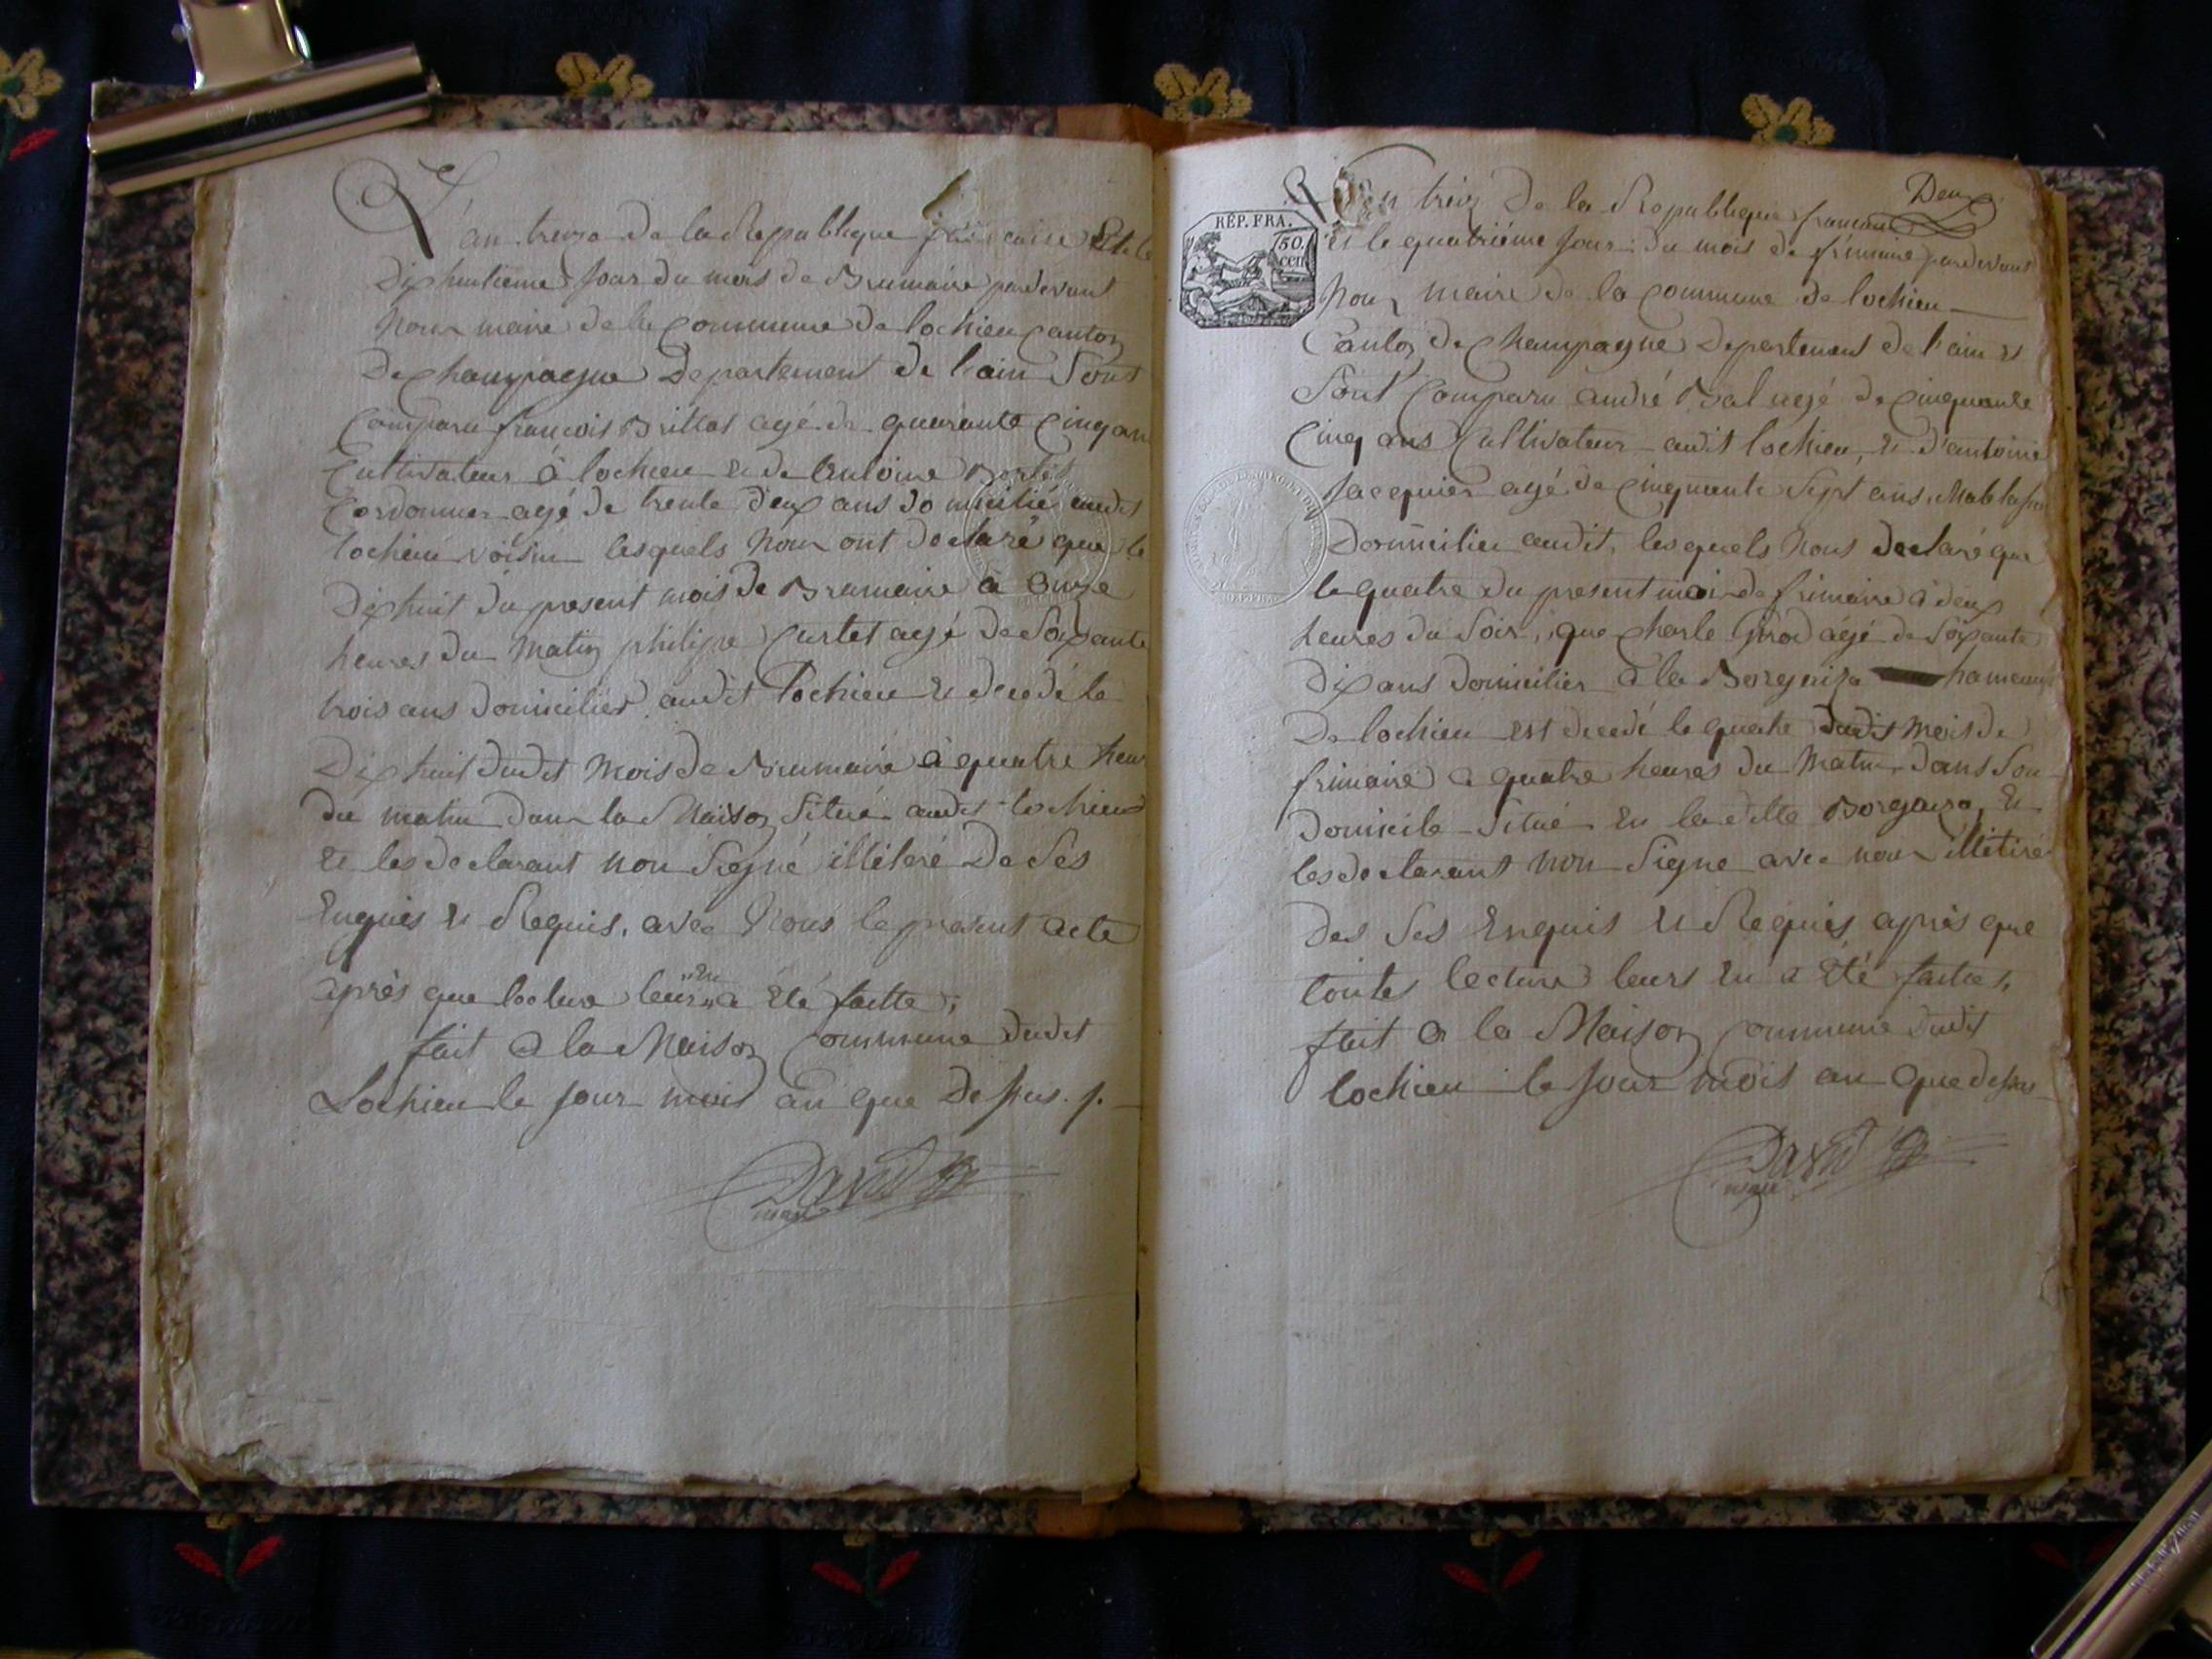 L'an treize de la Republique francaise Et le
Dix huitieme Jour du mois de Brumaire pardevant
Nous maire de la Commune de lochieu Canton
De champagne Departement de l'ain Sont
Comparu francois Brillat agé de quarante Cinq ans
Cultivateur à lochieu et de Antoine
Cordonnier agé de trente deux ans domicilié audit
lochieu voisin lesquels Nous ont declaré que le
Dix huit du present mois de Brumaire à Onze
heures du Matin philipe Curtet agé de Soixante
trois ans domicilier audit lochieu et decedé le
Dix huit dudit Mois de Brumaire à quatre heur
du matin dans la Maison Situé audit lochieu
et les declarant non Signé illiteré De Ses
Enquis et Requis, avec Nous le present acte
après que lecture leurs en a été faitte;
fait à la Maison Commune dudit
Lochieu le Jour mois an que Dessus.
David
maire
Deux
L'an treize De la Republique francaise
et le quatriéme Jour du mois de frimaire pardevant
REP. FRA.
50. cen
Nous maire de la Commune de lochieu
Canton de Champagne Departement de l'ain et
Sont Comparu andré Bal agé de Cinquante
Cinq ans Cultivateur audit lochieu, et d'antoine
Jacquier agé de Cinquante Sept ans,
Domicilier audit, lesquels Nous declaré que
le quatre du present mois de frimaire à deux
heures du Soir, que Charle Grod agé de Soixante
Dix ans domicilier à la hameaux
De lochieu est decedé le quatre dudit Mois de
frimaire à quatre heures du Matin dans Son
domicile Situé en la ditte et
les declarant non Signe avec nous illitiré
Des Ses Enquis et Requis après que
toutes lecture leurs en a été faites,
fait à la Maison Commune dudit
lochieu le Jour mois an que dessus
David
maire